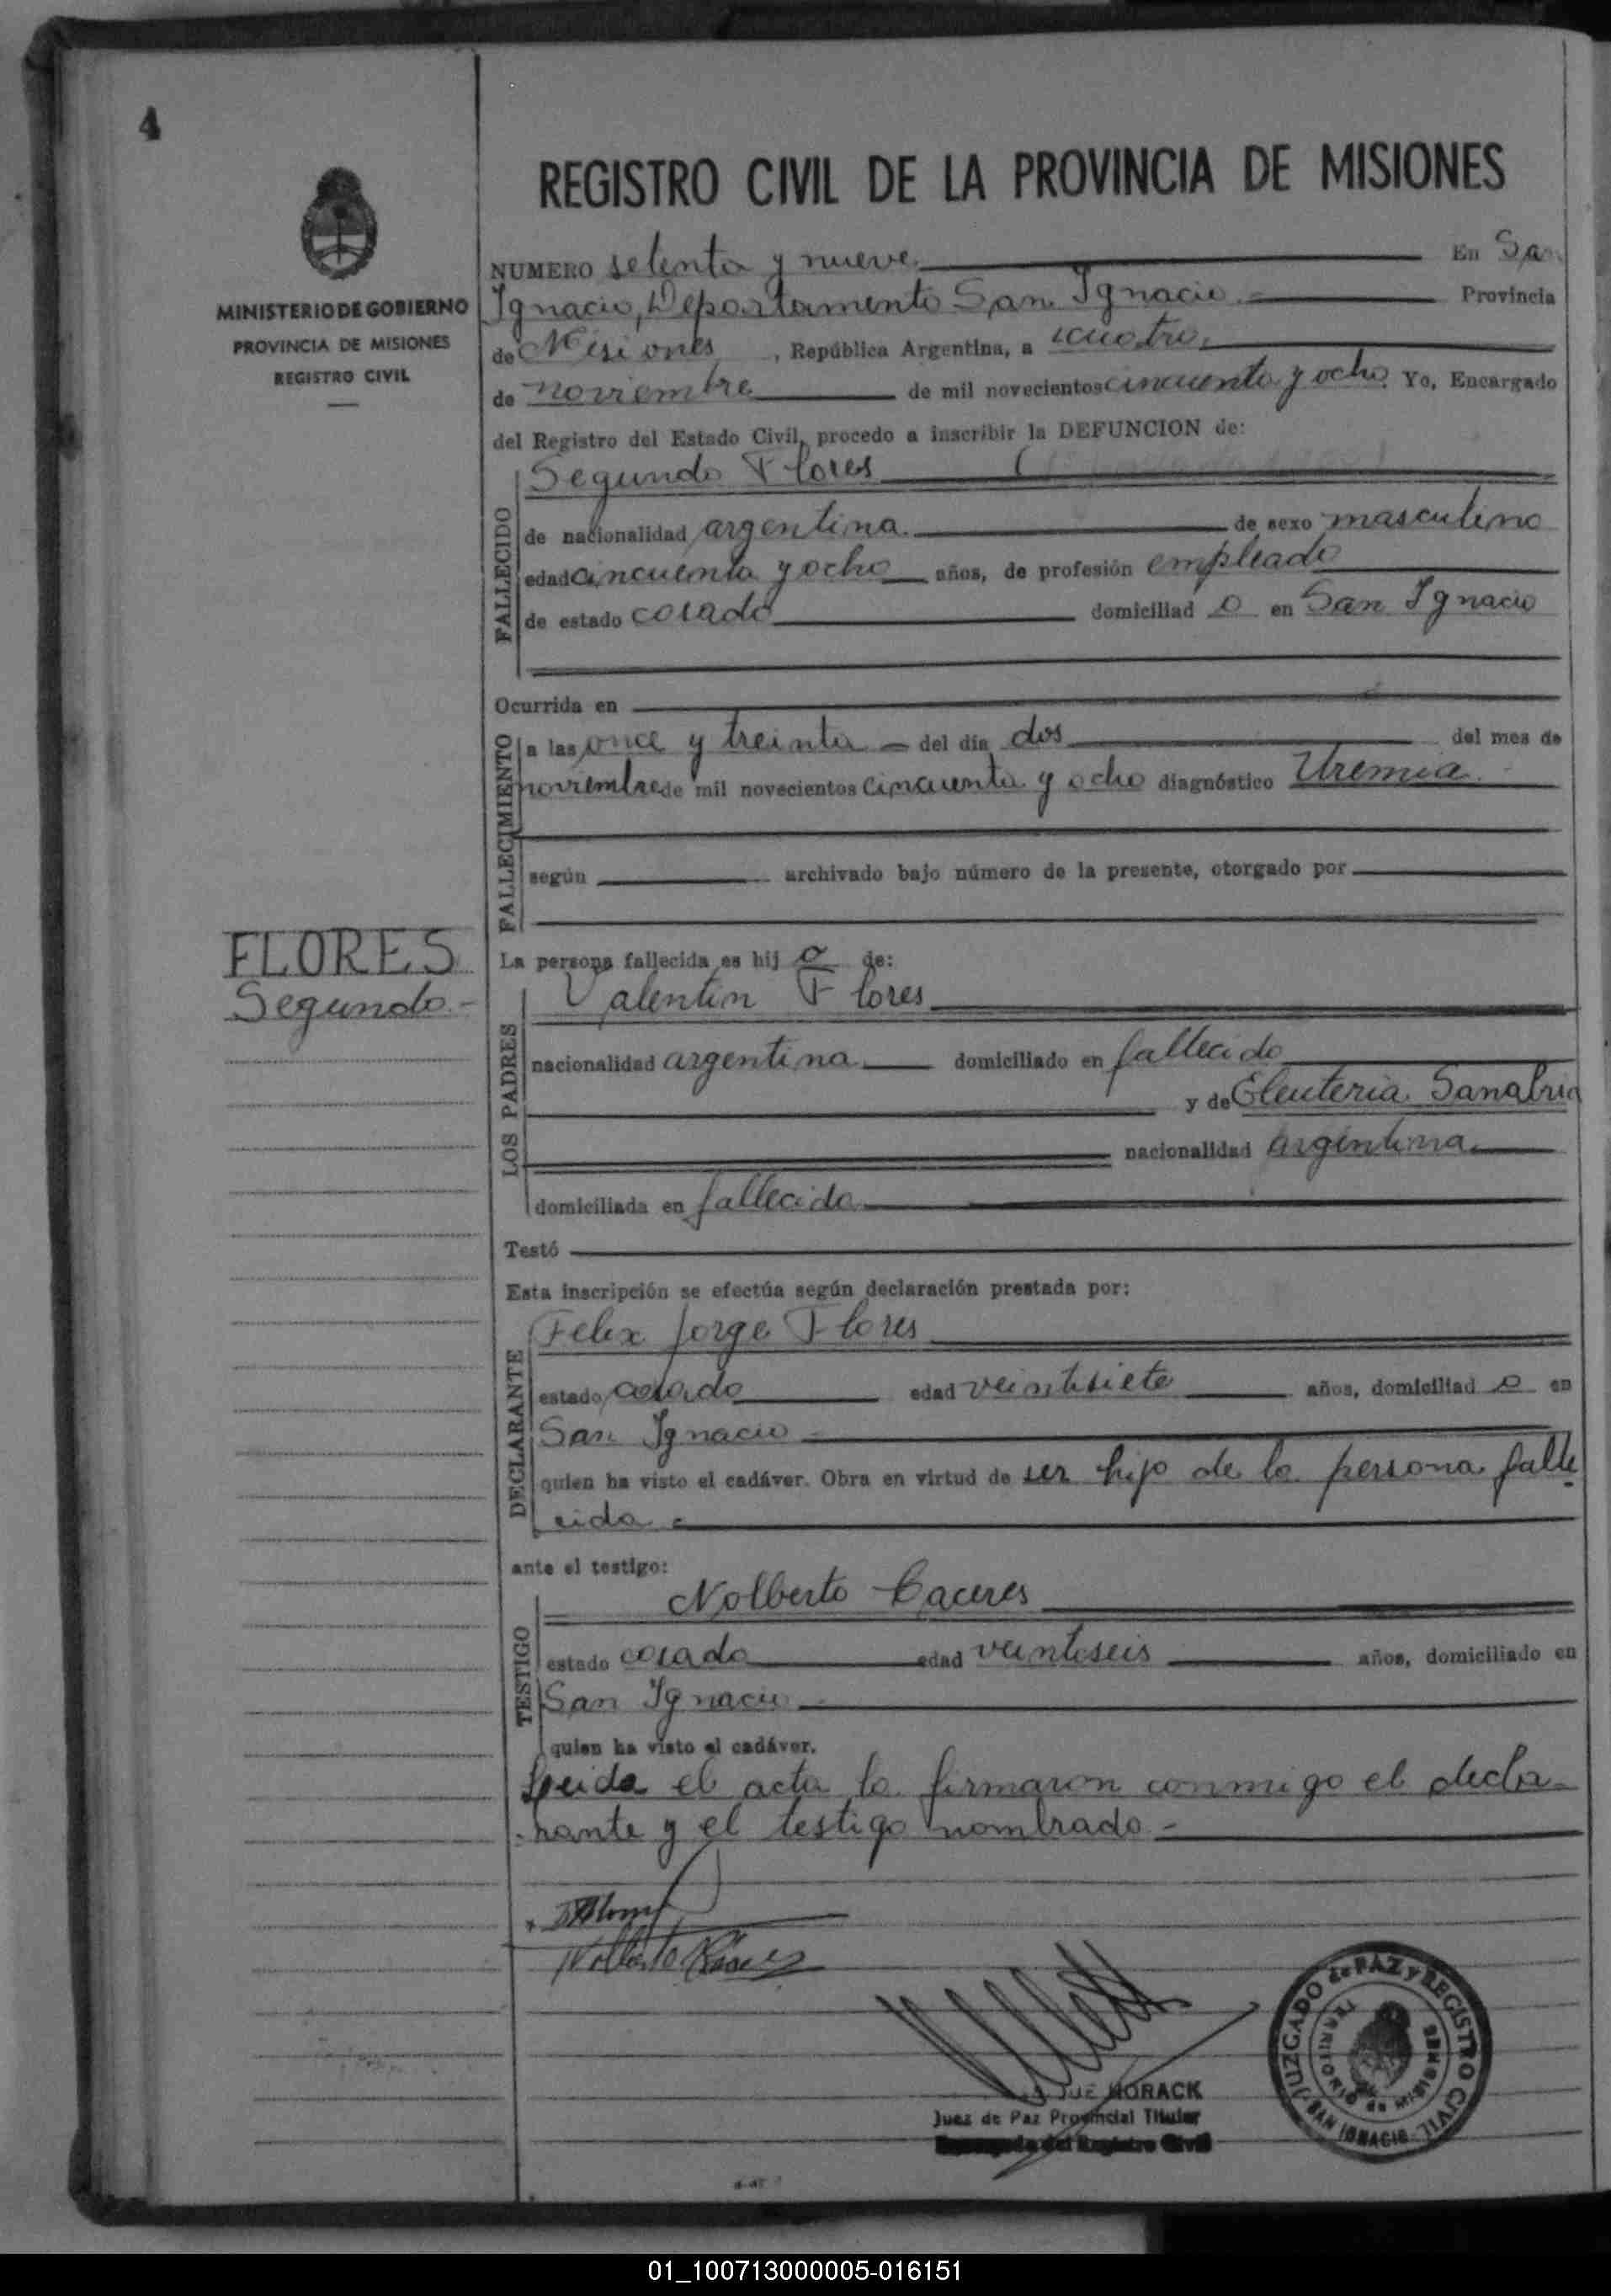 4
MINISTERIO DE GOBIERNO
PROVINCIA DE MISIONES
REGISTRO CIVIL
REGISTRO CIVIL DE LA PROVINCIA DE MISIONES
NUMERO setenta y nueve En San
Ignacio, Departamento San Ignacio.- Provincia
de Misiones, República Argentina, a cuatro
de noviembre de mil novecientos cincuenta y ocho Yo, Encargado
del Registro del Estado Civil, procedo a inscribir la DEFUNCION de:
FALLECIDO
Segundo Flores
de nacionalidad argentina. de sexo masculino
edad cincuenta y ocho años, de profesión empleado
de estado casado domiciliad o en San Ignacio
Ocurrida en
FALLECIMIENTO
a las once y treinta del día dos del mes de
noviembre de mil novecientos cincuenta y ocho diagnóstico Uremia
según archivado bajo número de la presente, otorgado por
FLORES
Segundo.-
La persona fallecida es hij o de:
LOS PADRES
Valentin Flores
nacionalidad argentina domiciliado en fallecido
y de Eleuteria Sanabria
nacionalidad argentina
domiciliada en fallecida
Testó
Esta inscripción se efectúa según declaración prestada por:
DECLARANTE
Felix Jorge Flores
estado casado edad veintisiete años, domiciliad o en
San Ignacio -
quien ha visto el cadáver. Obra en virtud de ser hijo de la persona falle
cida -
ante el testigo:
TESTIGO
Nolberto Caceres
estado casado edad veintiseis años, domiciliado en
San Ignacio -
quien ha visto el cadáver.
Leida el acta la firmaron conmigo el decla-
rante y el testigo nombrado -
Nolberto Caceres
HORACK
Juez de Paz Provincial Titular
Encargado del Registro Civil
JUZGADO de PAZ y REGISTRO CIVIL
SAN IGNACIO
TERRITORIO de MISIONES
01_100713000005-016151